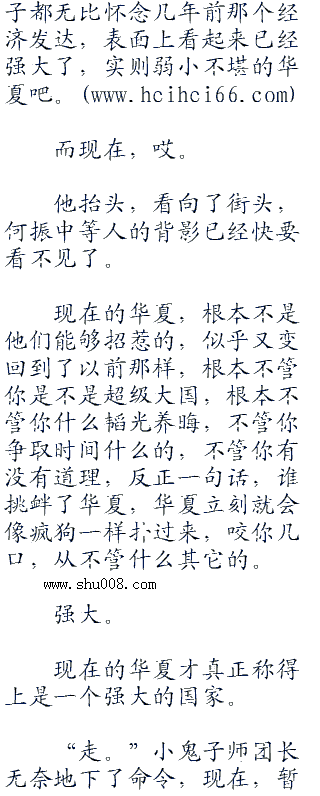 子都无比怀念几年前那个经
济发达，表面上看起来已经
强大了，实则弱小不堪的华
夏吧。(www.hcihci66.com)
而现在，哎。
他抬头，看向了街头，
何振中等人的背影已经快要
看不见了。
现在的华夏，根本不是
他们能够招惹的，似乎又变
回到了以前那样，根本不管
你是不是超级大国，根本不
管你什么韬光养晦，不管你
争取时间什么的，不管你有
没有道理，反正一句话，谁
挑衅了华夏，华夏立刻就会
像疯狗一样扑过来，咬你几
口，从不管什么其它的。
www.shu008.com
强大。
现在的华夏才真正称得
上是一个强大的国家。
“走。”小鬼子师团长
无奈地下了命令，现在，暂